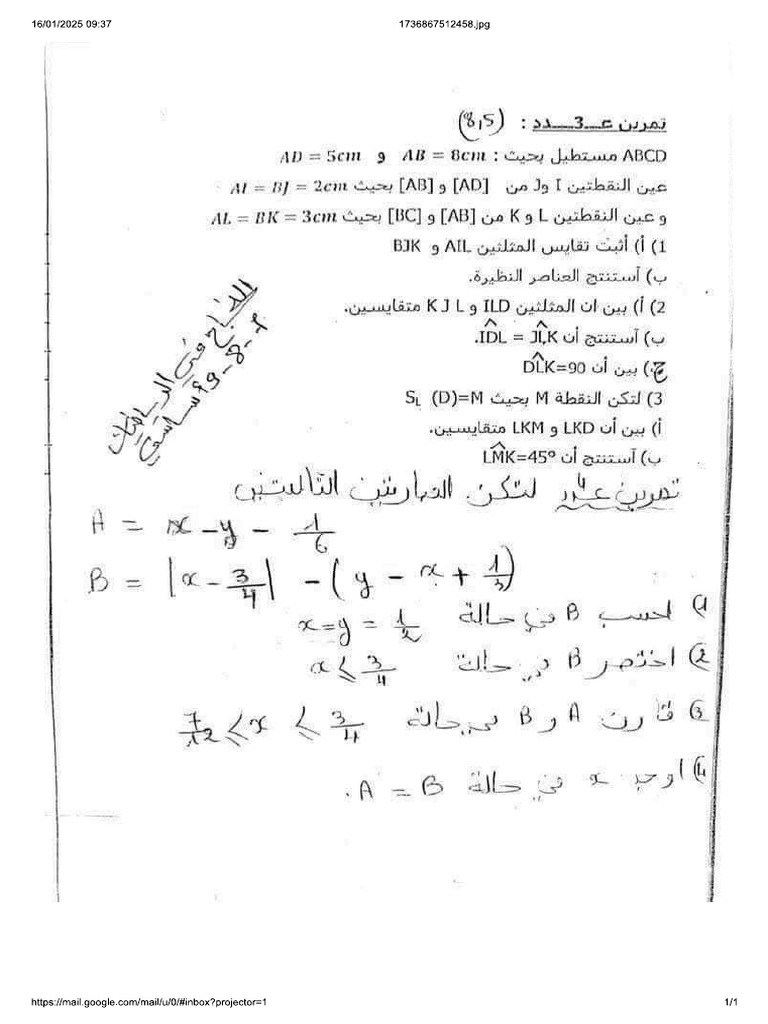 16/01/2025 09:37
1736867512458.jpg
تمرين عـــ3ـــدد : (8,5)
ABCD مستطيل بحيث : AB = 8cm و AD = 5cm
عين النقطتين I وJ من [AD] و [AB] بحيث AI = BJ = 2cm
و عين النقطتين L و K من [AB] و [BC] بحيث AL = BK = 3cm
1) أ) أثبت تقايس المثلثين AIL و BJK
ب) آستنتج العناصر النظيرة.
2) أ) بين ان المثلثين ILD و K J L متقايسين.
ب) آستنتج أن IDL = JLK.
ج) بين أن DLK=90
3) لتكن النقطة M بحيث S_L (D)=M
أ) بين أن LKD و LKM متقايسين.
ب) آستنتج أن LMK=45°
النجاح في الرياضيات
7-8-9 أساسي
تمرين عـ4ـدد لتكن العبارتين التاليتين
A = x - y - 1/6
B = |x - 3/4| - (y - x + 1/3)
1) احسب B في حالة x = y = 1/2
2) اختصر B في حالة x ⩽ 3/4
3) قارن A و B في حالة 7/12 ⩽ x ⩽ 3/4
4) اوجد x في حالة A = B.
https://mail.google.com/mail/u/0/#inbox?projector=1
1/1